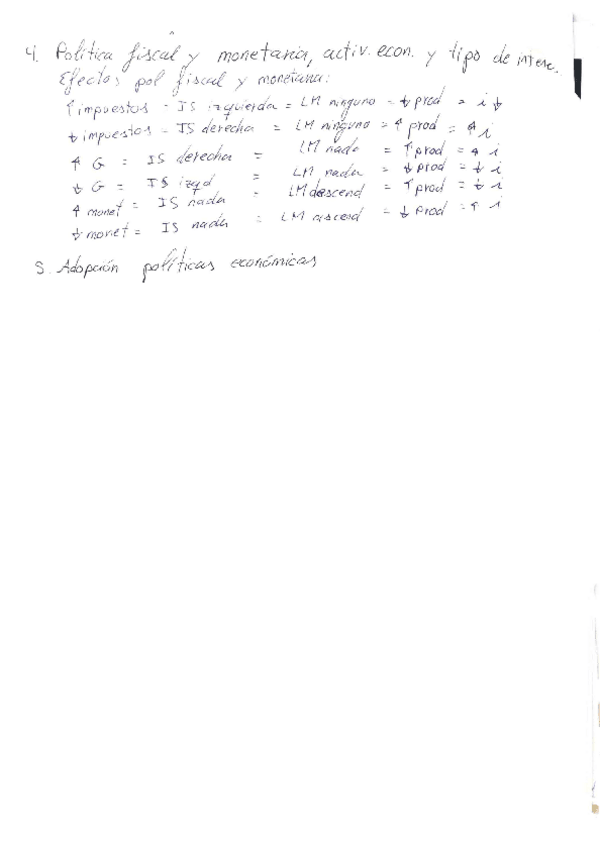 4. Política fiscal y monetaria, activ. econ. y tipo de interé.
Efectos pol fiscal y monetaria:
↑ impuestos - IS izquierda = LM ninguno = ↓ prod = i ↓
↓ impuestos - IS derecha = LM ninguno = ↑ prod = ↑ i
↑ G = IS derecha = LM nada = ↑ prod = ↑ i
↓ G = IS izqd = LM nada = ↓ prod = ↓ i
↑ monet = IS nada = LM descend = ↑ prod = ↓ i
↓ monet = IS nada = LM ascend = ↓ prod = ↑ i
5. Adopción políticas económicas